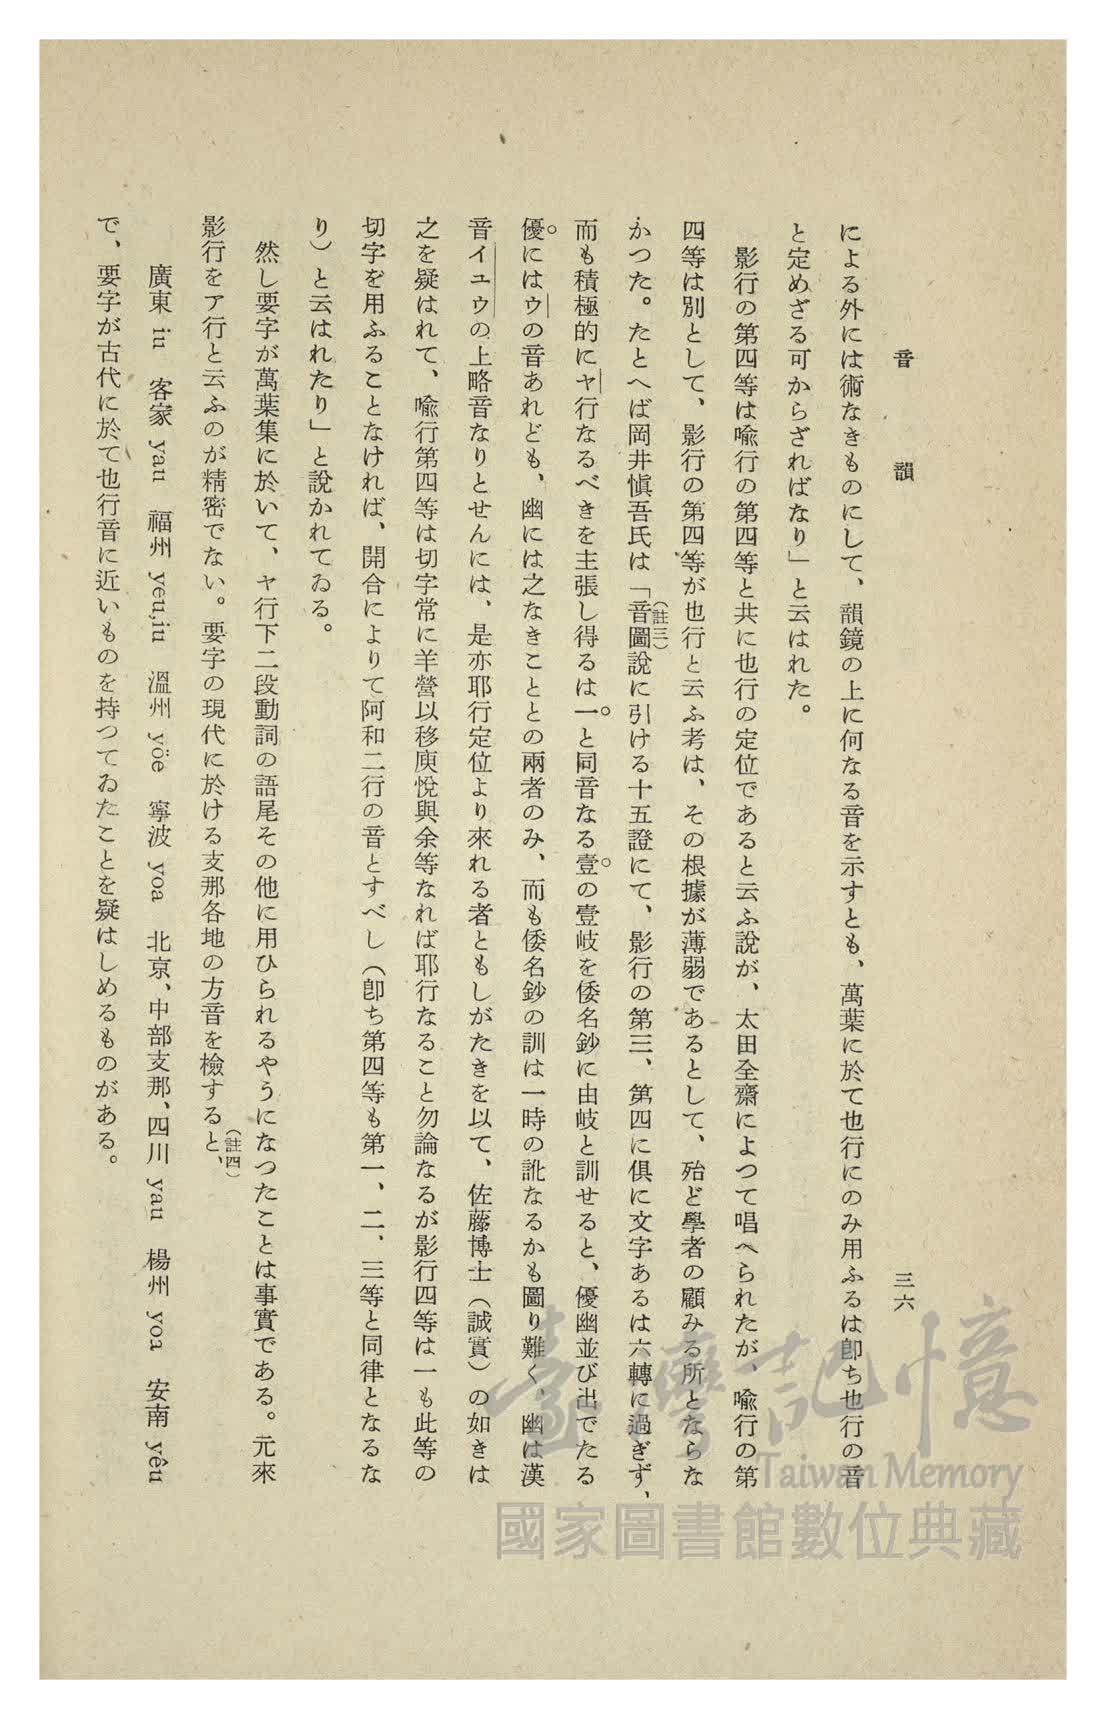 音韻
三六
による外には術なきものにして、韻鏡の上に何なる音を示すとも、萬葉に於て也行にのみ用ふるは卽ち也行の音
と定めざる可からざればなり」と云はれた。
影行の第四等は喩行の第四等と共に也行の定位であると云ふ說が、太田全齋によつて唱へられたが、喩行の第
四等は別として、影行の第四等が也行と云ふ考は、その根據が薄弱であるとして、殆ど學者の顧みる所とならな
かつた。たとへば岡井愼吾氏は「音圖說に引ける十五證にて、影行の第三、第四に俱に文字あるは六轉に過ぎず、
(註三)
而も積極的にヤ行なるべきを主張し得るは一と同音なる壹の壹岐を倭名鈔に由岐と訓せると、優幽並び出でたる
優にはウの音あれども、幽には之なきこととの兩者のみ、而も倭名鈔の訓は一時の訛なるかも圖り難く、幽は漢
音イユウの上略音なりとせんには、是亦耶行定位より來れる者ともしがたきを以て、佐藤博士(誠實)の如きは
之を疑はれて、喩行第四等は切字常に羊營以移庾悅與余等なれば耶行なること勿論なるが影行四等は一も此等の
切字を用ふることなければ、開合によりて阿和二行の音とすべし(卽ち第四等も第一、二、三等と同律となるな
り)と云はれたり」と說かれてゐる。
然し要字が萬葉集に於いて、ヤ行下二段動詞の語尾その他に用ひられるやうになつたことは事實である。元來
影行をア行と云ふのが精密でない。要字の現代に於ける支那各地の方音を檢すると、
(註四)
廣東 iu 客家 yau 福州 yeu,iu 溫州 yöe 寧波 yoa 北京、中部支那、四川 yau 楊州 yoa 安南 yêu
で、要字が古代に於て也行音に近いものを持つてゐたことを疑はしめるものがある。
臺灣記憶
Taiwan Memory
國家圖書館數位典藏